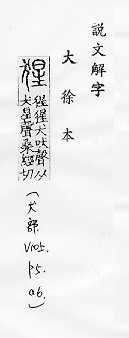 說文解字
大徐本
猩
猩猩犬吠聲从
犬星聲桑經切
(犬部
V105.
p5.
a6.)